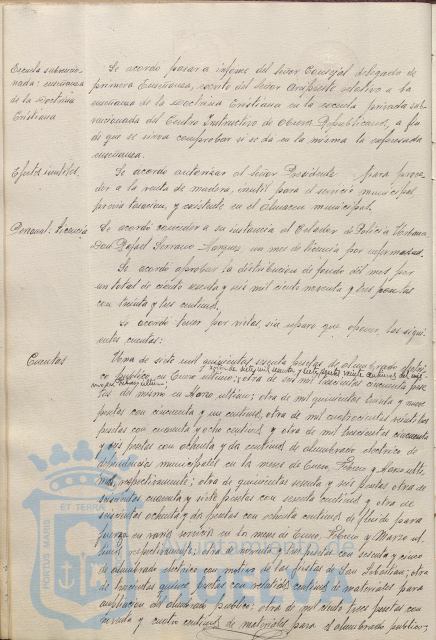 Escuela subvencio-
nada: enseñanza
de la Doctrina
Cristiana
Se acordó pasar a informe del Señor Concejal delegado de
primera Enseñanza, escrito del Señor Arcipreste relativo a la
enseñanza de la Doctrina Cristiana en la escuela privada sub-
vencionada del Centro Instructivo de Obreros Republicanos, a fin
de que se sirva comprobar si se dá en la misma la referida
enseñanza.
Efectos inútiles.
Se acordó autorizar al Señor Presidente para proce-
der a la venta de madera, inútil para el servicio municipal
previa tasación, y existente en el Almacén municipal.
Personal: licencia
Se acordó conceder a su instancia al Celador de Policía Urbana
Don Rafael Serrano, un mes de licencia por enfermedad.
Se acordó aprobar la distribución de fondos del mes por
un total de ciento y seis mil ciento noventa y tres pesetas
con treinta y tres céntimos.
Se acordó tener por vistas, sin reparo que oponer las sigui-
entes cuentas:
Cuentas
Una de siete mil quinientas sesenta pesetas de alumbrado eléctri-
co público en Enero último; otra de seis mil trescientas cincuenta pese-
tas del mismo en Marzo último; otra de mil quinientas treinta y nueve
pesetas con cincuenta y un céntimos, otra de mil cuatrocientas veintitres
pesetas con cuarenta y ocho céntimos, y otra de mil trescientas cincuenta
y seis pesetas con ochenta y dos céntimos de alumbrado eléctrico de
dependencias municipales en los meses de Enero, Febrero y Marzo últi-
mos, respectivamente; otra de quinientas sesenta y seis pesetas otra de
seiscientas cuarenta y siete pesetas con sesenta céntimos y otra de
seiscientas ochenta y dos pesetas con ochenta céntimos de fluido para
fuerza en varios servicios en los meses de Enero, Febrero y Marzo úl-
timos respectivamente; otra de noventa y dos pesetas con sesenta y cinco
de alumbrado eléctrico con motivo de las fiestas de San Sebastián; otra
de trescientas quince pesetas con céntimos de materiales para
ampliación del alumbrado público; otra de mil ciento tres pesetas con
noventa y cuatro céntimos de materiales para el alumbrado público;
PORTUS MAGNUS
ET TERRA